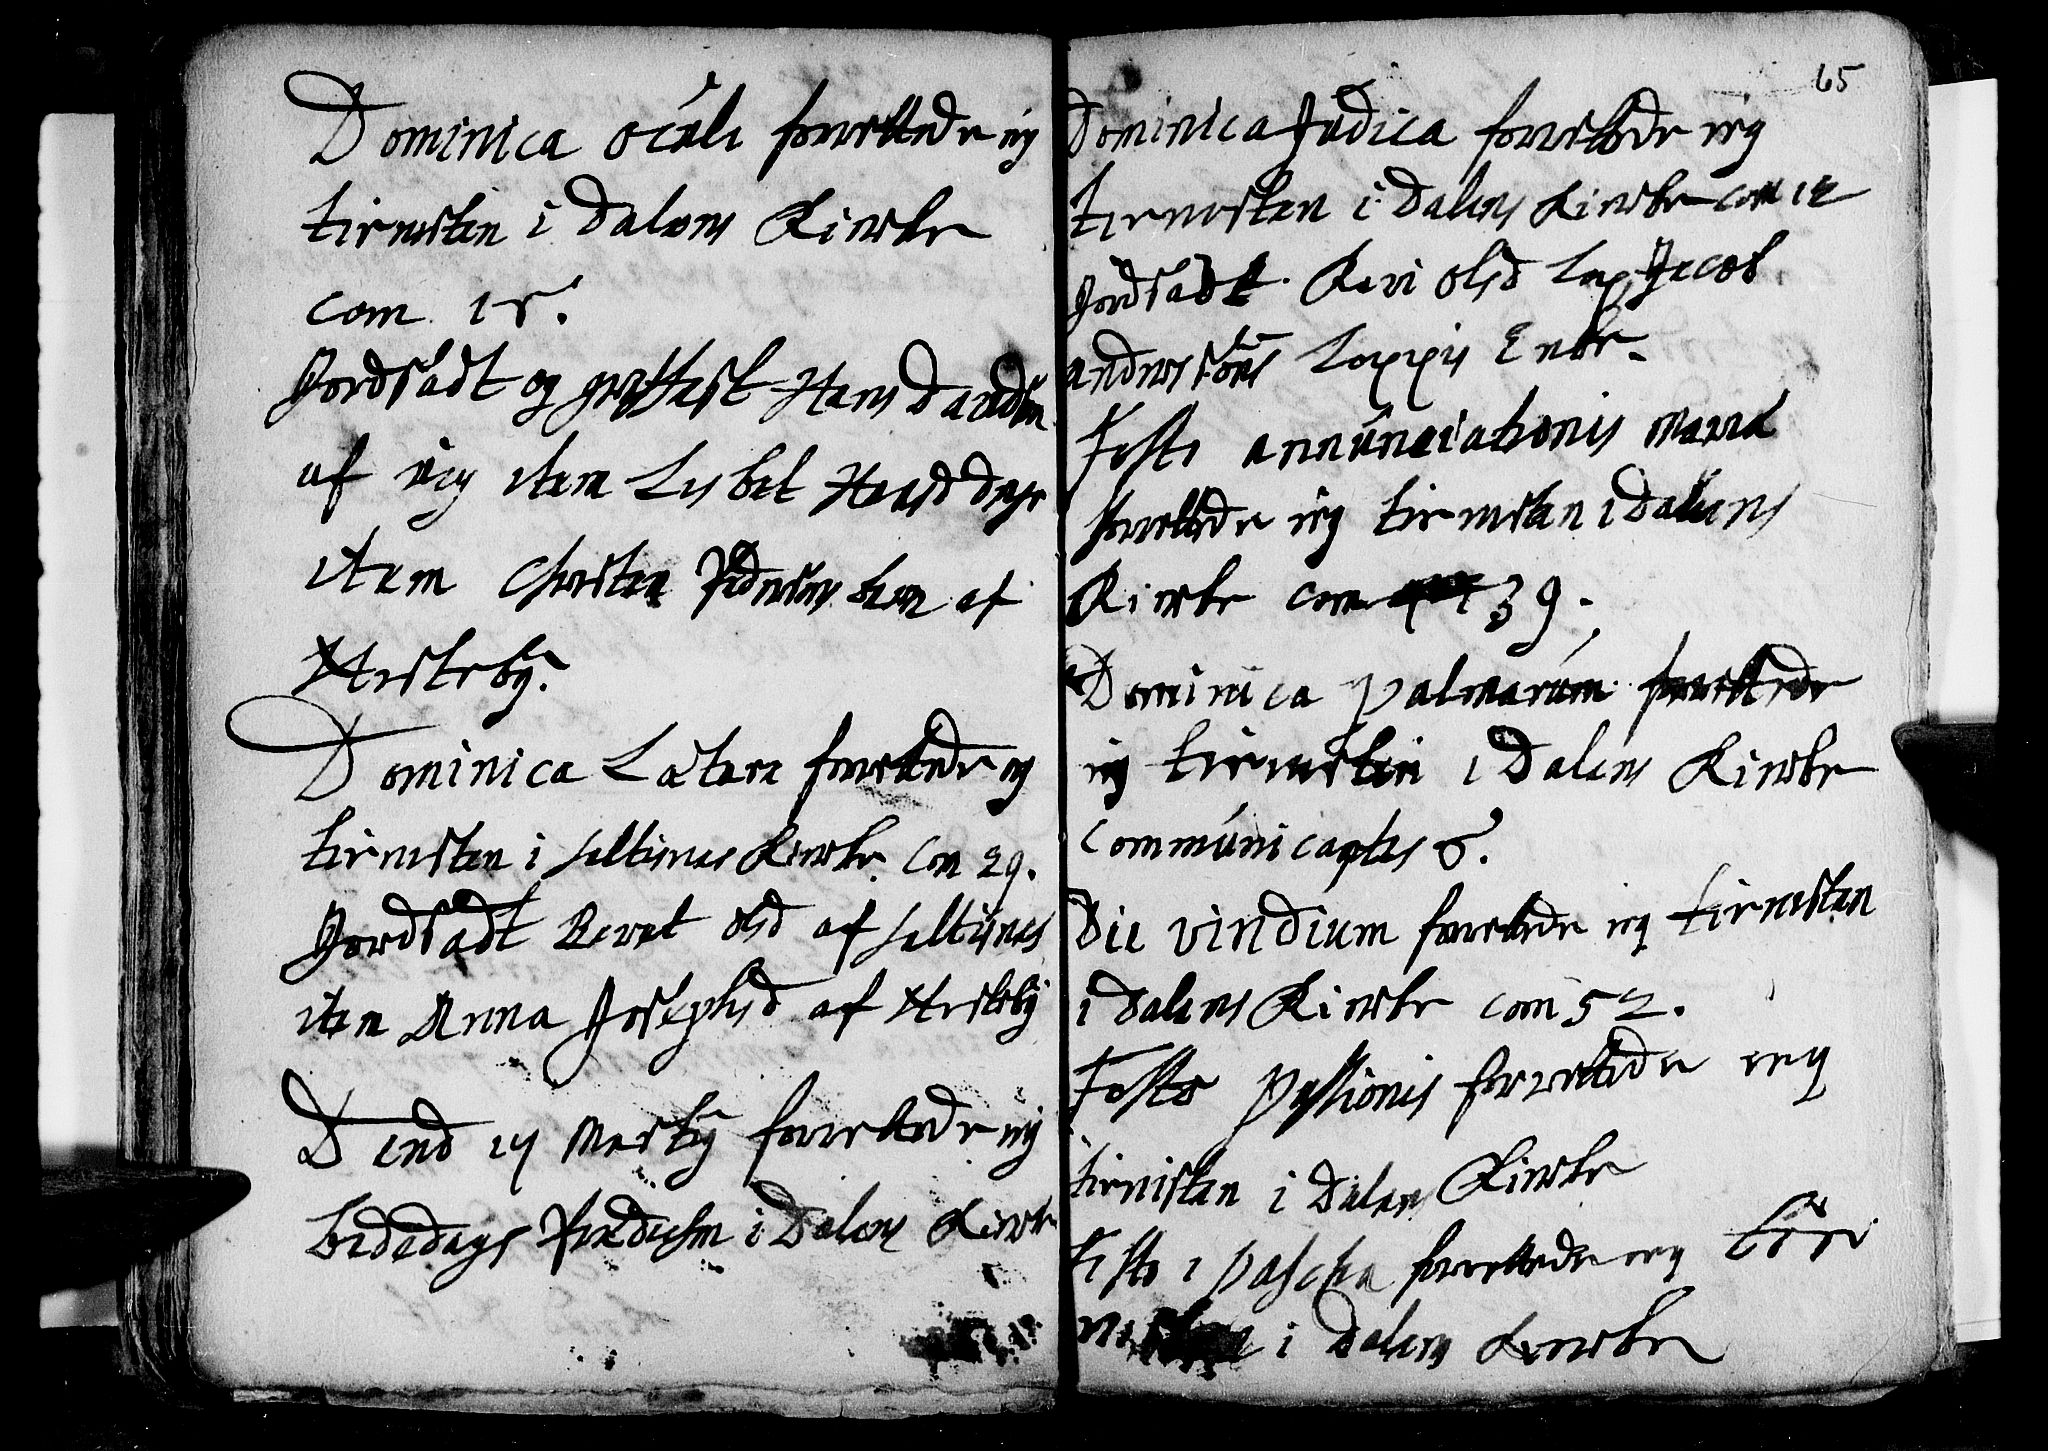 Dominica Oculi forrettede ieg
tienisten i Dalens Kiercke
com 15.
Jordsadt og græffest Hans Davidsen
af  item Lisbet Hansd
item Christen Pedersens af
Heskeby.
Dominica Lætare forrettede ieg
tienisten i Seltisnes Kircke. Com 29.
Jordsadt Beret Olsd af Seltisnes
item Anna Josephsd af Heskeby
Dend 14 Martij forrettede ieg
bededags Prædicken i Dalens Kircke
65
Dominica Judica forrettede ieg
tienesten i Dalens Kiercke com 12
Jordsadt. Kari Olsd Lap Jacob
Andersøns Lappis Encke.
Festo annúnciationis Mariæ
forrettede ieg tienisten i Dalens
Kiercke com 39.
Dominica palmarúm forrettede
ieg tienisten i Dalens Kiercke
Commúnicantes 8.
Die viridium forrettede ieg tienisten
i Dalens Kiercke com 52.
Festo passionis forrettede ieg
tienisten i Dalens Kiercke
Festo 1 paschæ forrettede ieg tie
nisten i Dalens Kiercke